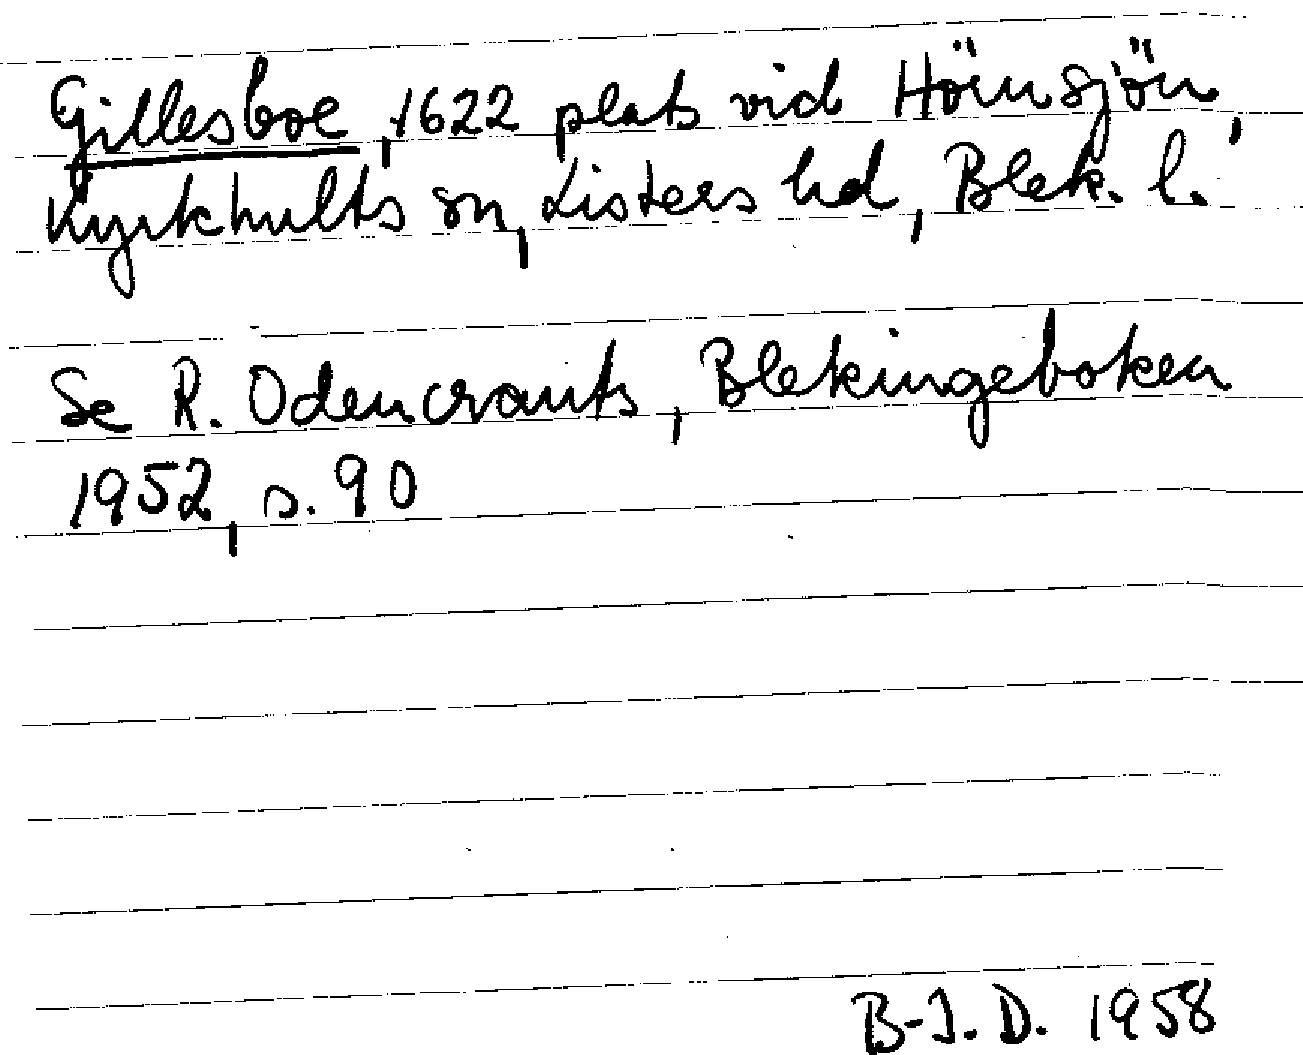 Gillesboe, 1622 plats vid Hörnsjön,
Kyrkhults sn, Listers hd, Blek. l.
Se R. Odencrants, Blekingeboken
1952, s. 90
B-I. D. 1958